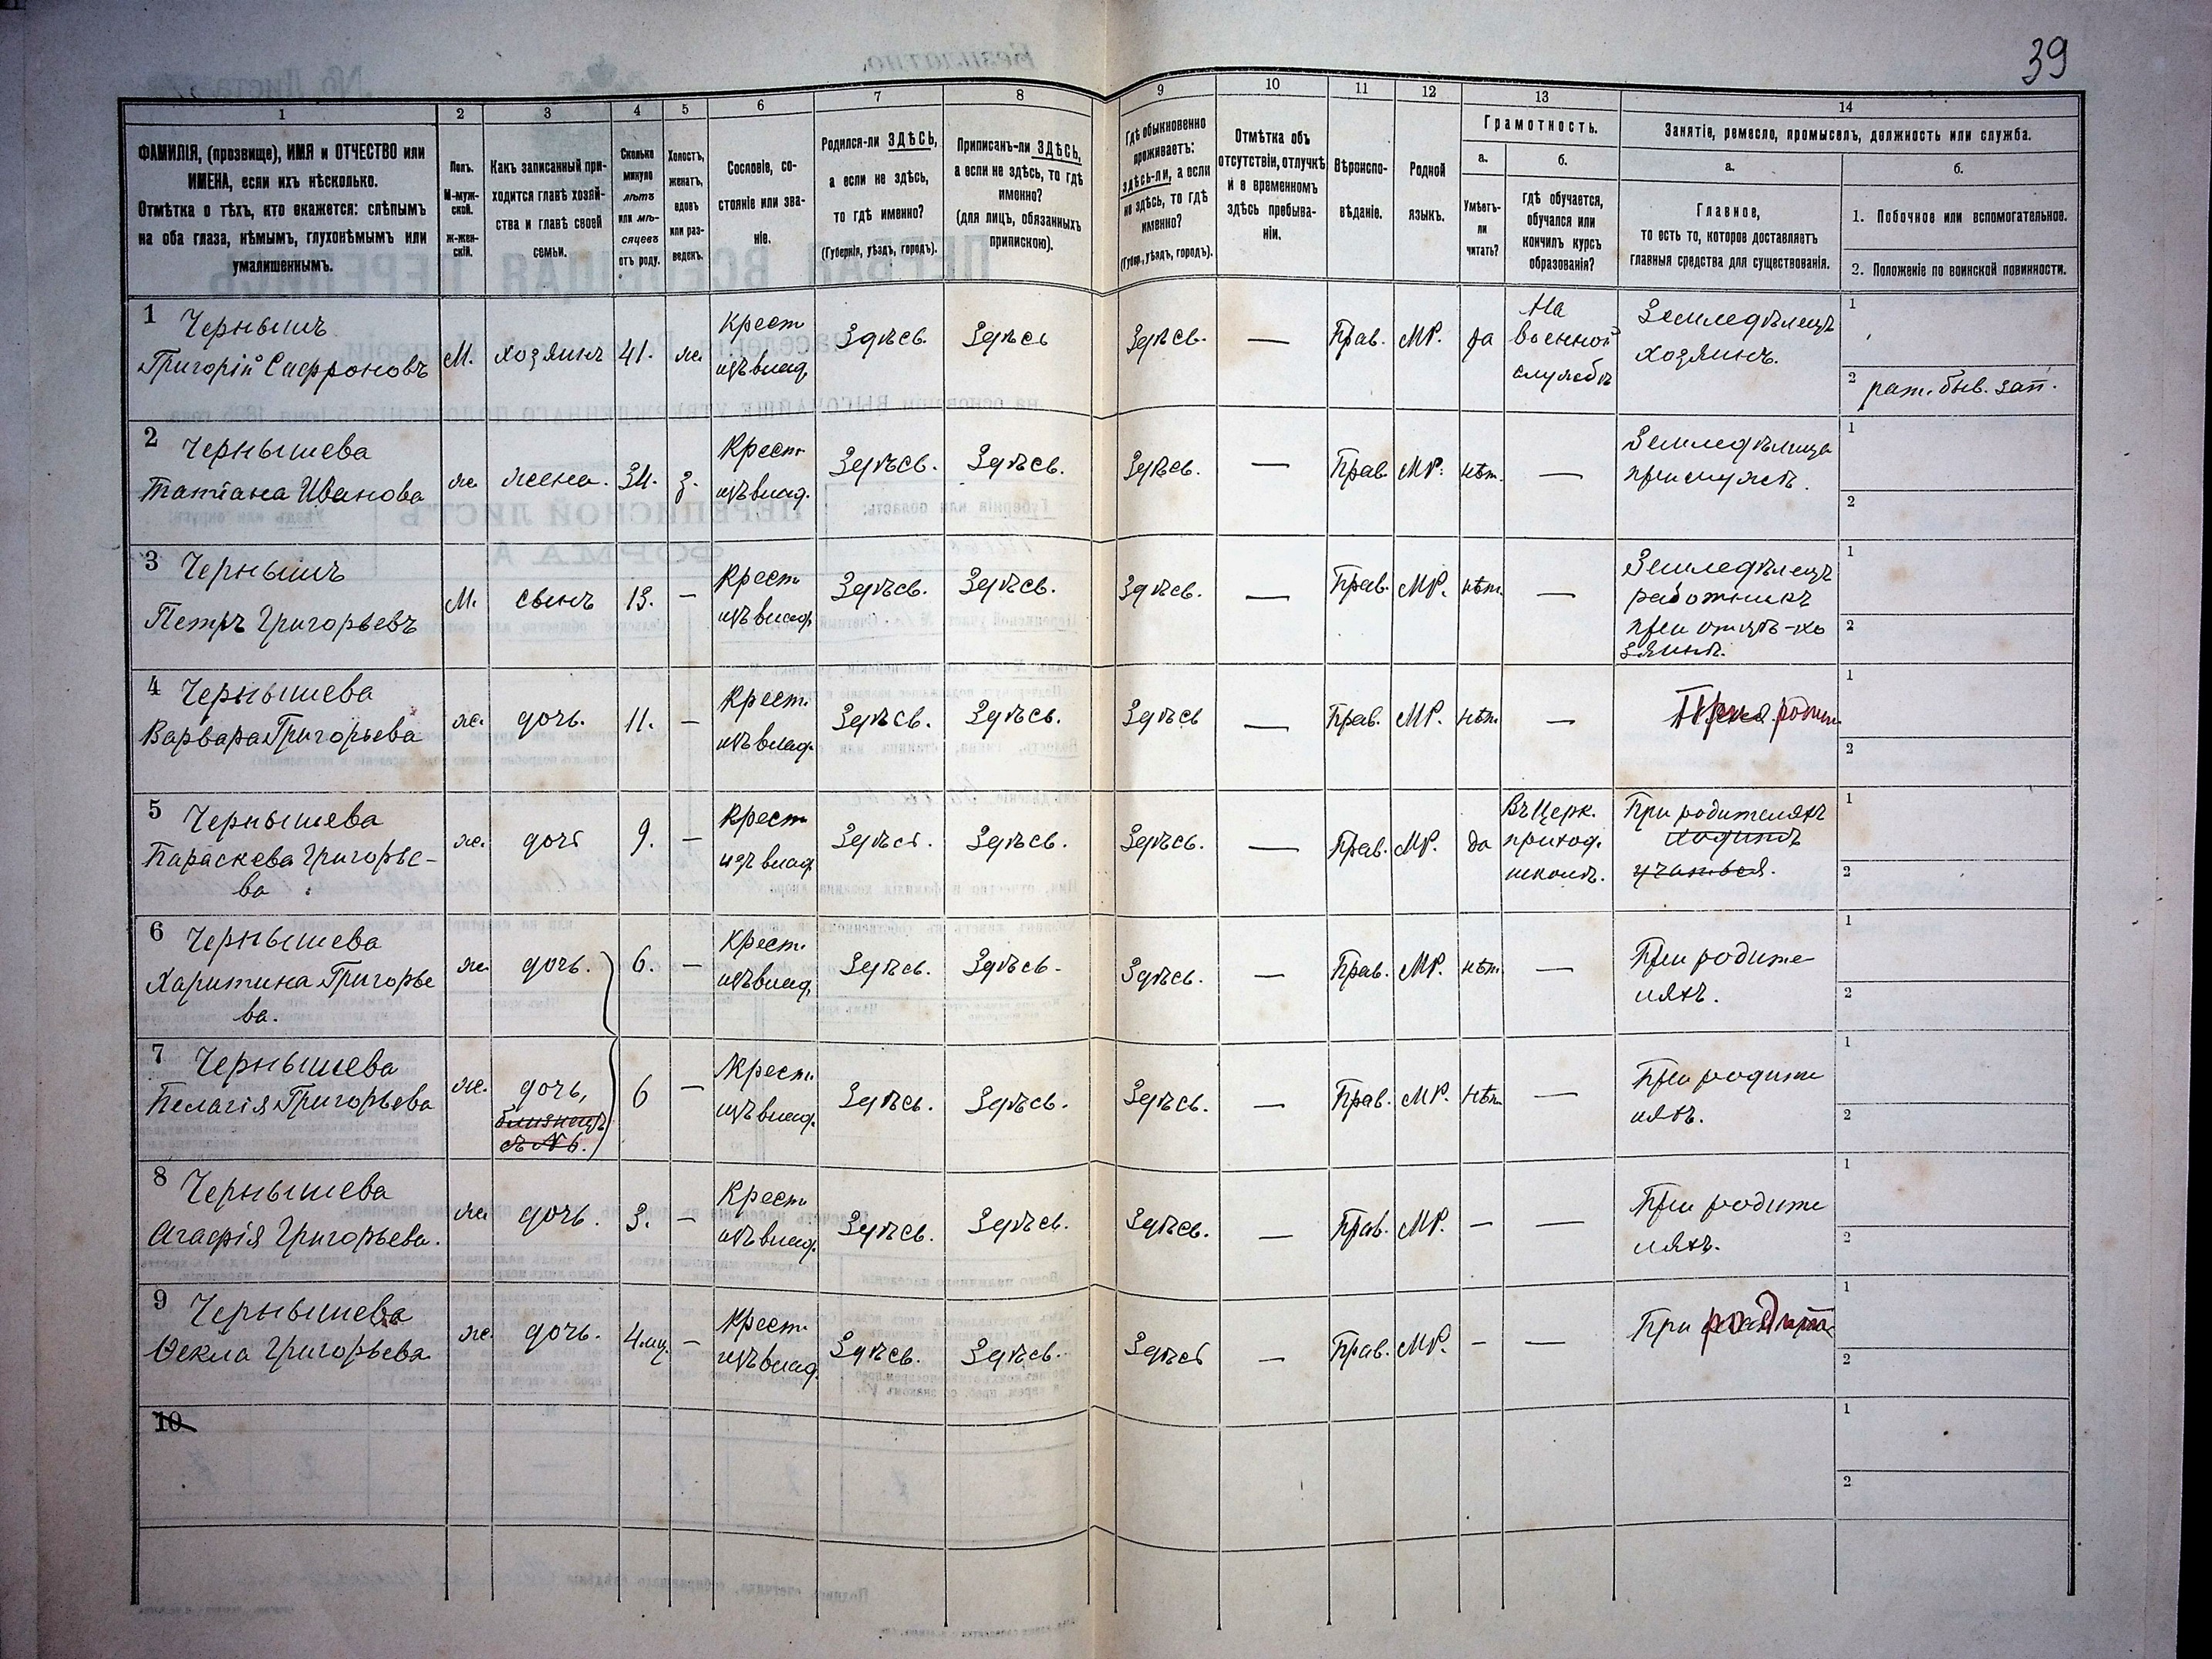 39
1 2 3 4 5 6 7 8 9 10 11 12 13 14
ФАМИЛІЯ, (прозвище), ИМЯ и ОТЧЕСТВО или
ИМЕНА, если ихъ нѣсколько.
Отмѣтка о тѣхъ, кто окажется: слѣпымъ
на оба глаза, нѣмымъ, глухонѣмымъ или
умалишеннымъ.
Полъ.
М-муж-
ской.
Ж-жен-
скій.
Какъ записанный при-
ходится главѣ хозяй-
ства и главѣ своей
семьи.
Сколько
минуло
лѣтъ
или мѣ-
сяцевъ
отъ роду.
Холостъ,
женатъ,
вдовъ
или раз-
веденъ.
Сословіе, со-
стояніе или зва-
ніе.
Родился-ли ЗДѢСЬ,
а если не здѣсь,
то гдѣ именно?
(Губернія, уѣздъ, городъ).
Приписанъ-ли ЗДѢСЬ,
а если не здѣсь, то гдѣ
именно?
(для лицъ, обязанныхъ
припискою).
Гдѣ обыкновенно
проживаетъ:
здѣсь-ли, а если
не здѣсь, то гдѣ
именно?
(Губер., уѣздъ, городъ).
Отмѣтка объ
отсутствіи, отлучкѣ
и о временномъ
здѣсь пребыва-
ніи.
Вѣроиспо-
вѣданіе.
Родной
языкъ.
Грамотность.
а.
Умѣетъ-
ли
читать?
б.
гдѣ обучается,
обучался или
кончилъ курсъ
образованія?
Занятіе, ремесло, промыселъ, должность или служба.
а.
Главное,
то есть то, которое доставляетъ
главныя средства для существованія.
б.
1. Побочное или вспомогательное.
2. Положеніе по воинской повинности.
1 Чернышъ
Григорій Сафроновъ
М.
хозяинъ
41.
ж.
Крест
изъ влад.
Здѣсь.
Здѣсь
Здѣсь.
—
Прав.
МР.
да
На
военной
службѣ
Земледѣлецъ
хозяинъ.
1
2 рат. быв. зап.
2 Чернышева
Татіана Иванова
ж.
жена.
34.
з.
Крест
изъ влад.
Здѣсь.
Здѣсь.
Здѣсь.
—
Прав.
МР.
нѣт.
—
Земледѣлица
при мужѣ.
1
2
3 Чернышъ
Петръ Григорьевъ
М.
сынъ
13.
—
Крест
изъ влад.
Здѣсь.
Здѣсь.
Здѣсь.
—
Прав.
МР.
нѣт.
—
Земледѣлецъ
работникъ
при отцѣ-хо
зяинѣ.
1
2
4 Чернышева
Варвара Григорьева
ж.
дочь.
11.
—
Крест.
изъ влад.
Здѣсь.
Здѣсь.
Здѣсь
—
Прав.
МР.
нѣт.
—
При родит.
1
2
5 Чернышева
Параскева Григорье-
ва
ж.
дочь
9.
—
Крест
изъ влад.
Здѣсь.
Здѣсь.
Здѣсь.
—
Прав.
МР.
да
Въ Церк.
приход.
школѣ.
При родителяхъ
ходитъ
учиться.
1
2
6 Чернышева
Харитина Григорье
ва.
ж.
дочь.
6.
—
Крест.
изъ влад.
Здѣсь.
Здѣсь.
Здѣсь.
—
Прав.
МР.
нѣт.
—
При родите
ляхъ.
1
2
7 Чернышева
Пелагія Григорьева
ж.
дочь,
близнецъ
съ №6.
6
—
Крест.
изъ влад.
Здѣсь.
Здѣсь.
Здѣсь.
—
Прав.
МР.
нѣт.
—
При родите
ляхъ.
1
2
8 Чернышева
Агафія Григорьева.
ж.
дочь.
3.
—
Крест
изъ влад.
Здѣсь.
Здѣсь.
Здѣсь.
—
Прав.
МР.
—
—
При родите
ляхъ.
1
2
9 Чернышева
Ѳекла Григорьева
ж.
дочь.
4 мц
—
Крест.
изъ влад.
Здѣсь.
Здѣсь.
Здѣсь
—
Прав.
МР.
—
—
При родит.
1
2
10
1
2